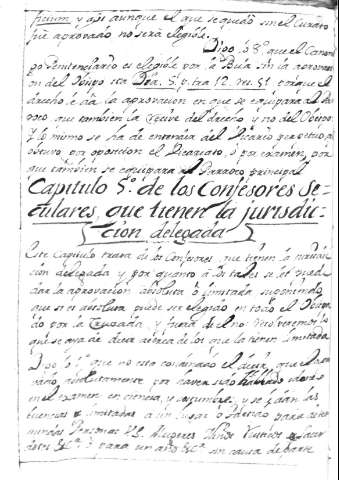 ficium, y assi aunque el que se quedo sin el Curato
fue aprovado no será elegible.
Digo lo 3º que el Canoni
go Penitenciario es elegible por la Bula sin la aprovaci
on del Obispo
derecho le da la aprovacion en que se equipara al Pa
rroco que tambien la recive del derecho y no del Obispo
y lo mismo se ha de entender del Vicario perpetuo que
obtuvo por oposicion el Vicariato, o por examen, por
que tambien se equipara al Parroco principal
Capitulo 5º. de los Confesores Se-
culares, que tienen la jurisdic-
cion delegada
Este Capitulo trata de los Confesores que tienen la jurisdic
cion delegada y por quanto a los tales se les puede
dar la aprovacion absoluta o limitada suponiendo
que si es absoluta puede ser elegido en todo el Obispa
do por la Cruzada, y fuera de el no: veremos lo
que se ha de decir acerca de los que la tienen limitada
Digo lo 1º que no esta condenado el decir que el apro
vado absolutamente por haver sido hallado idoneo
en el examen en ciencia, y costumbres, y se le dan las
licencias limitadas a un lugar o Obispado para deter
minadas Personas V.g. Mugeres Niños Rusticos o Sacer
dotes &cª. o para un año &cª sin causa de parte